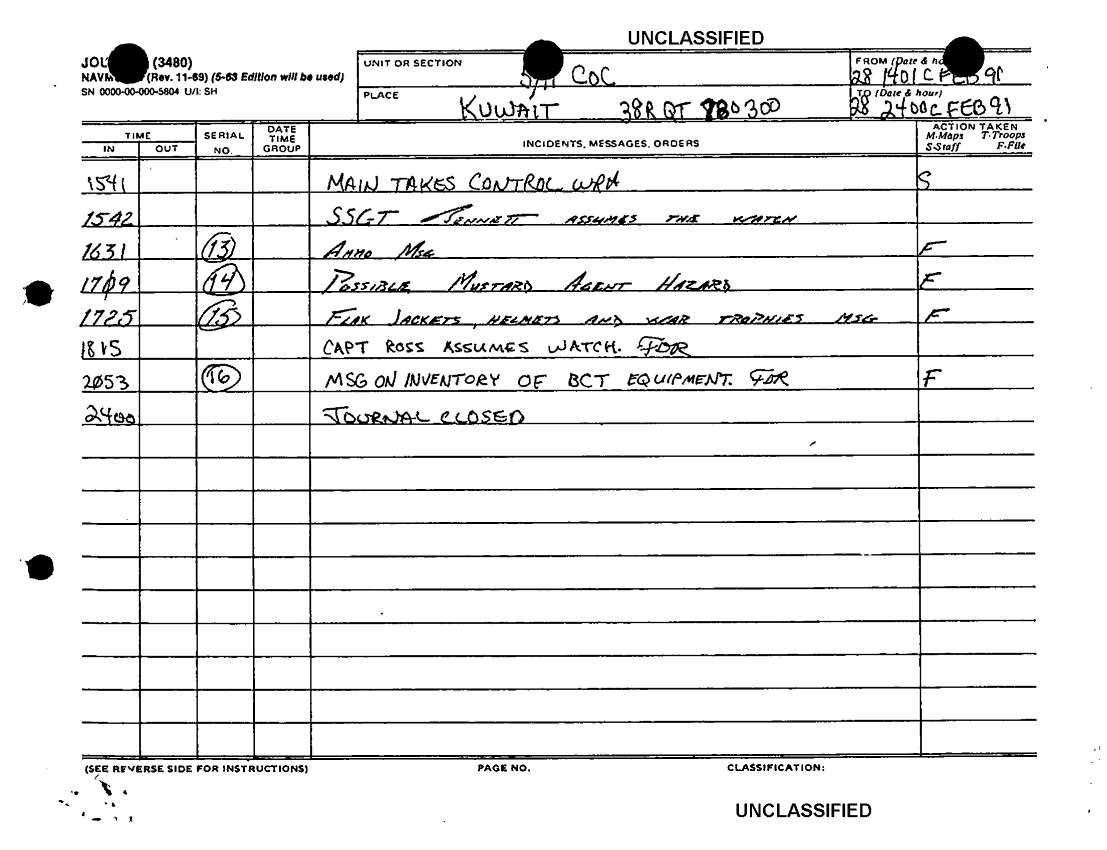 UNCLASSIFIED
JOU (3480)
NAVM (Rev. 11-69) (5-63 Edition will be used)
SN 0000-00-000-5804 U/I: SH
UNIT OR SECTION
5/11 COC
FROM (Date & ho
28 1401C FEB 91
PLACE
KUWAIT 38R QT 980300
TO (Date & hour)
28 2400C FEB 91
TIME
IN OUT
SERIAL NO.
DATE TIME GROUP
INCIDENTS, MESSAGES, ORDERS
ACTION TAKEN
M-Maps T-Troops
S-Staff F-File
1541 MAIN TAKES CONTROL WRH S
1542 SSGT BENNETT ASSUMES THE WATCH
1631 13 AMMO MSG F
1709 14 POSSIBLE MUSTARD AGENT HAZARD F
1725 15 FLAK JACKETS, HELMETS AND WAR TROPHIES MSG F
1815 CAPT ROSS ASSUMES WATCH. FDR
2053 16 MSG ON INVENTORY OF BCT EQUIPMENT. FDR F
2400 JOURNAL CLOSED
(SEE REVERSE SIDE FOR INSTRUCTIONS) PAGE NO. CLASSIFICATION:
UNCLASSIFIED